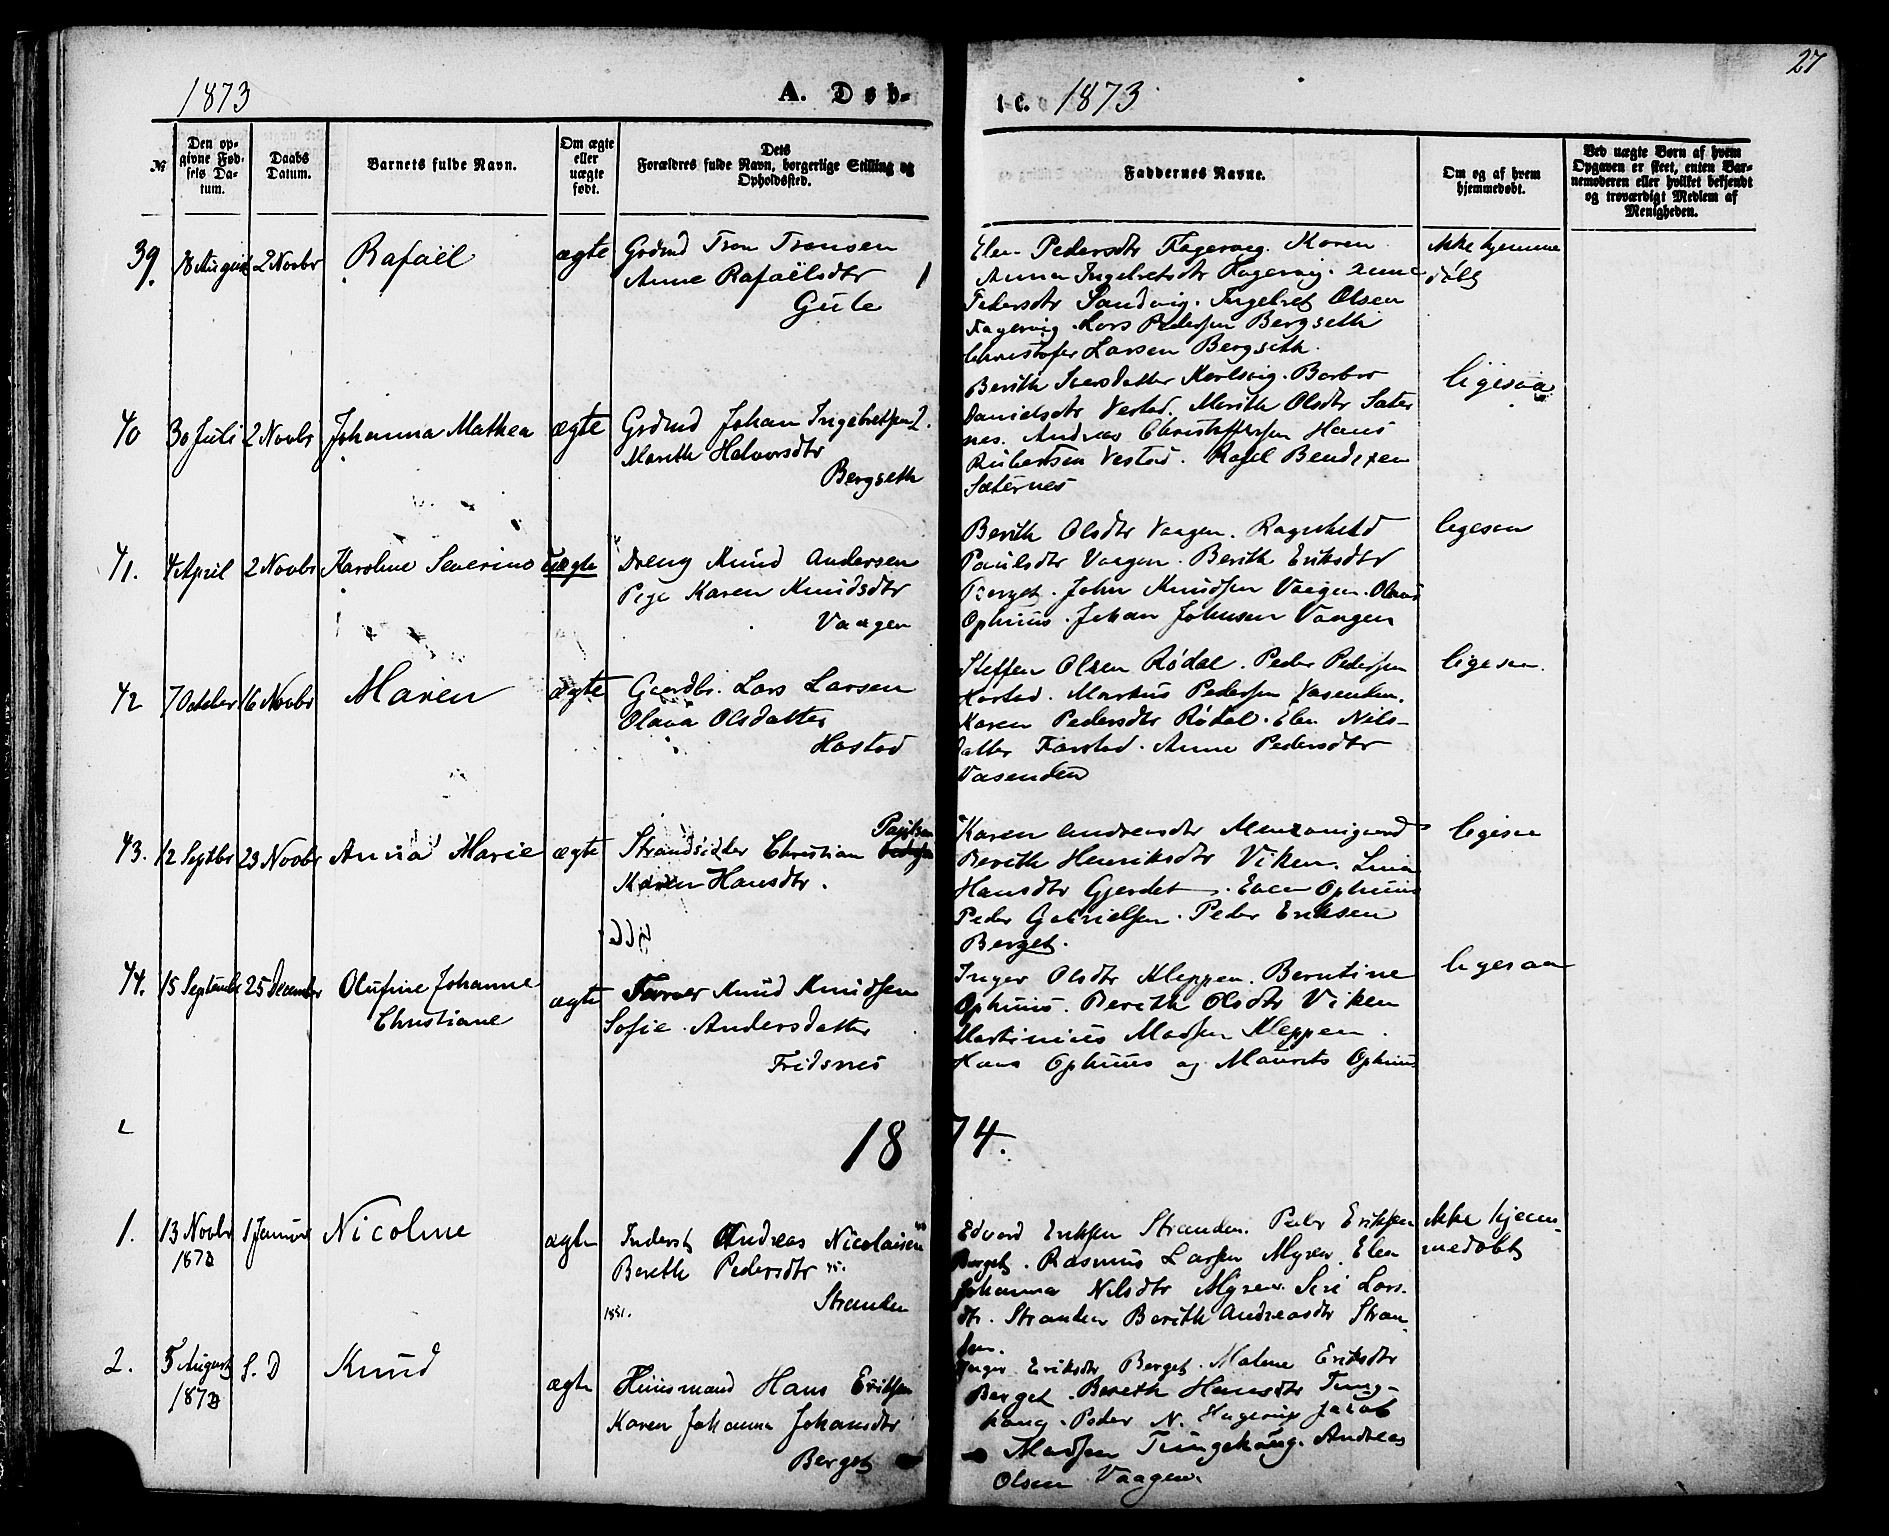 27
1873
A. Døb-
te.
1873
№
Den op-
givne Fød-
sels Da-
tum.
Daabs
Datum.
Barnets fulde Navn.
Om ægte
eller
uægte
født.
Dets
Forældres fulde Navn, borgerlige Stilling og
Opholdssted.
Faddernes Navne.
Om og af hvem
hjemmedøbt.
Ved uægte Børn af hvem
Opgaven er skeet, enten Bar-
nemoderen eller hvilket bekjendt
og troværdigt Medlem af
Menigheden.
39. 18 August 2 Novbr Rafaël ægte
Grdmd Tron Tronsen
Anne Rafaëlsdtr
Gule
Elen Pedersdtr Fagervig. Maren
Anna Ingebretsdtr Fagervig. Anne
Pedersdtr Sandvig. Ingebret Olsen
Fagervig. Lars Pedersen Bergseth
Christofer Larsen Bergseth.
ikke hjemme
døbt
40 30 Juli 2 Novbr Johanna Mathea ægte
Grdmd Johan Ingebretsen 2.
Marith Halvorsdtr
Bergseth
Berith Iversdatter Karlsvig. Barbro
Danielsdtr Vestad. Marith Olsdtr Sæter
nes. Andreas Christoffersen Hans
Rubertsen Vestad. Rafel Bendixen
Sæternes
ligesaa
41. 4 April 2 Novbr Karoline Severine uægte
Dreng Knud Andersen
Pige Karen Knudsdtr
Vaagen
Berith Olsdtr Vaagen. Ragnhild
Paulsdtr Vaagen. Berith Eriksdtr
Berget. John Knudsen Vaagen. Olaus
Ophuus. Johan Johnsen Vaagen
ligesaa
42 7 October 16 Novbr Maren ægte
Gaardbr. Lars Larsen
Olava Olsdatter
Hostad
Steffen Olsen Rødal. Peder Pedersen
Hostad. Markus Pedersen Vasenden.
Karen Pedersdtr Rødal. Elen Nils-
datter Farstad. Anne Pedersdtr
Vasenden
ligesaa.
43. 12 Septbr 23 Novbr Anna Marie ægte
Strandsidder Christian
Karen Hansdtr.
Karen Andreasdtr
Berith Henriksdtr Viken. Lina
Hansdtr Gjerdet. Even Ophuus
Peder Gabrielsen. Peder Eriksen
Berget.
ligesaa
44. 15 September 25 December Olufine Johanne
Christiane
ægte
Farver Knud Knudsen
Sofie Andersdatter
Fridsnes
Inger Olsdtr Kleppen. Berntine
Ophuus. Berith Olsdtr Viken
Martinius Madsen Kleppen.
Hans Ophuus og Maurits Ophuus
ligesaa
1874.
1. 13 Novbr
1873
1 Januar Nicoline ægte
Inderst Andreas Nicolaisen
Bereth Pedersdtr
Stranden
1831.
Edvard Eriksen Stranden. Peder Eriksen
Berget. Rasmus Larsen Myren. Elen
Johanna Nilsdtr Myren. Siri Lars-
dtr. Stranden Berith Andreasdtr Stran-
den.
ikke hjem-
medøbt
2. 5 August
1873
S. D Knud ægte
Huusmand Hans Eriksen
Karen Johanna Johansdtr
Berget
Inger Eriksdtr Berget. Malene Eriksdtr
Berget. Bereth Hansdtr Tung-
haug. Peder N. Hagervig Jacob
Madsen Tungehaug. Andreas
Olsen Vaagen.